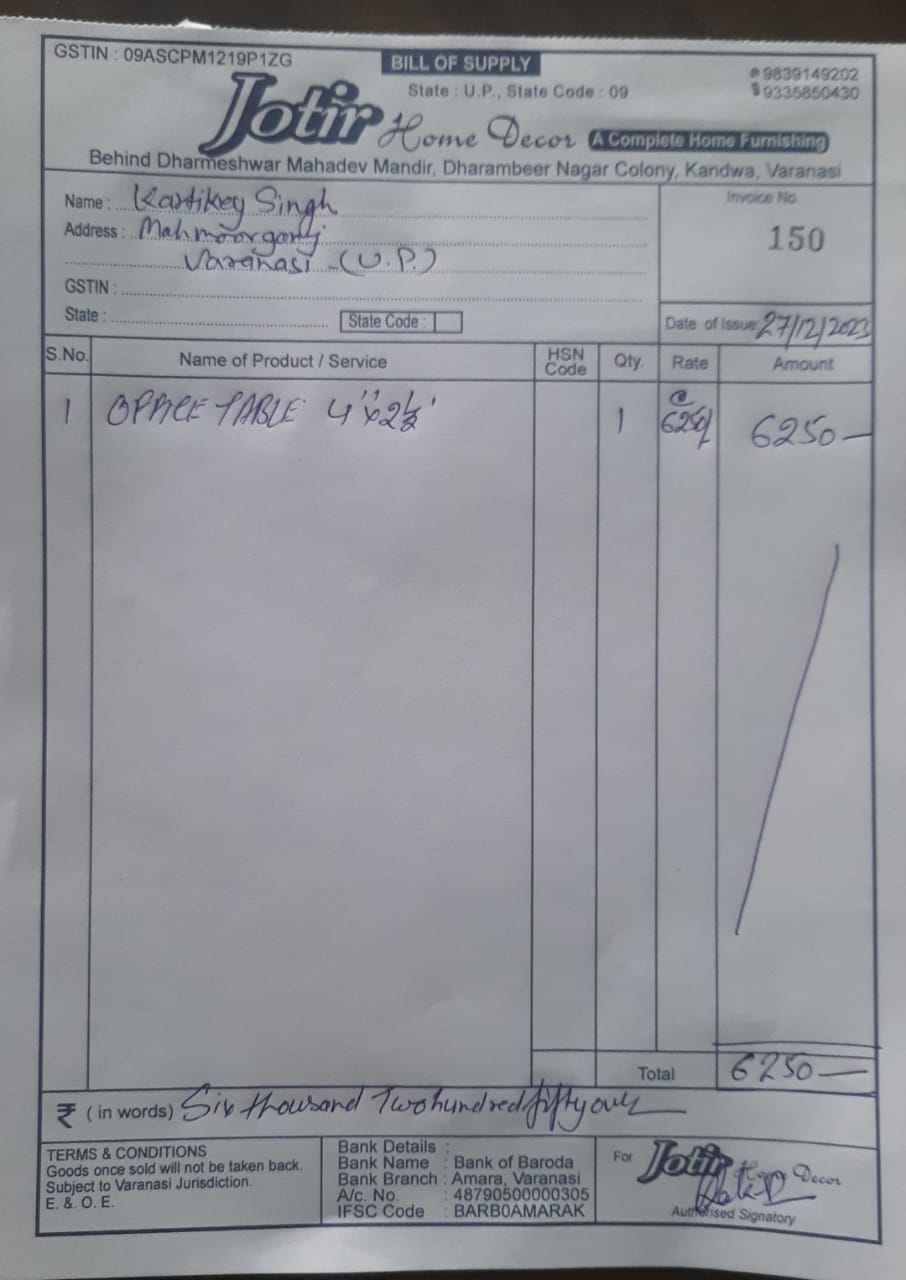 GSTIN : 09ASCPM1219P1ZG
BILL OF SUPPLY
State : U.P., State Code : 09
9839149202
9335850430
Jotir Home Decor A Complete Home Furnishing
Behind Dharmeshwar Mahadev Mandir, Dharambeer Nagar Colony, Kandwa, Varanasi
Name : Kartikey Singh
Address : Mahmoorganj
Varanasi - (U.P.)
GSTIN :
State : State Code :
Invoice No.
150
Date of Issue: 27/12/2023
S.No. Name of Product / Service HSN Code Qty. Rate Amount
1 OFFICE TABLE 4''x2½' 1 @ 6250/ 6250—
Total 6250—
₹ (in words) Six thousand Two hundred fifty only
TERMS & CONDITIONS
Goods once sold will not be taken back.
Subject to Varanasi Jurisdiction.
E. & O. E.
Bank Details :
Bank Name : Bank of Baroda
Bank Branch : Amara, Varanasi
A/c. No. : 48790500000305
IFSC Code : BARB0AMARAK
For Jotir Home Decor
Authorised Signatory